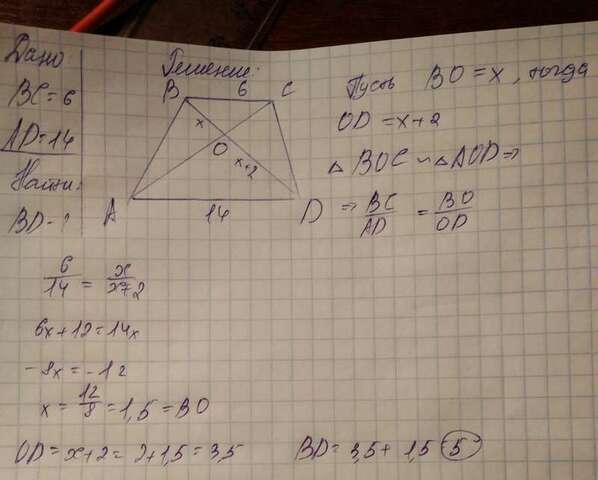 Дано:
BC=6
AD=14
Найти:
BD-?
Решение:
B 6 C
x
O
x+2
A 14 D
Пусть BO=x, тогда
OD=x+2
△BOC ~ △AOD ⇒
⇒ BC/AD = BO/OD
6/14 = x/x+2
6x+12=14x
-8x=-12
x= 12/8 =1,5=BO
OD=x+2=2+1,5=3,5
BD=3,5+1,5 5